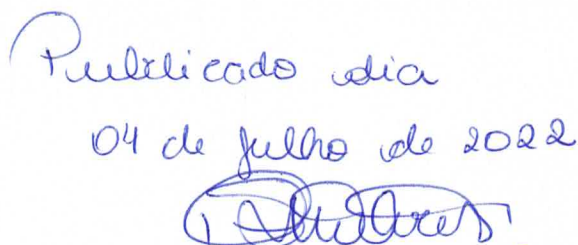 Publicado dia
04 de julho de 2022